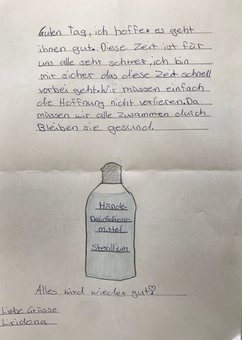 Guten Tag, ich hoffe es geht
ihnen gut. Diese Zeit ist für
uns alle sehr schwer, ich bin
mir sicher das diese Zeit schnell
vorbei geht. Wir müssen einfach
die Hoffnung nicht verlieren. Da
müssen wir alle zusammen durch
Bleiben sie gesund.
Hände
Desinfektions-
mittel
Sterillium
Alles wird wieder gut♡
Liebe Grüsse
Liridona